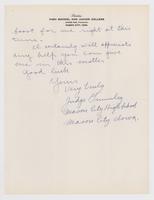 HIGH SCHOOL AND JUNIOR COLLEGE
MASON CITY, IOWA
boost for me right at this
time.
I certainly will appreciate
any help you can give
me in this matter.
Good luck
Yours
Very truly
Mason City High School
Mason City Iowa.